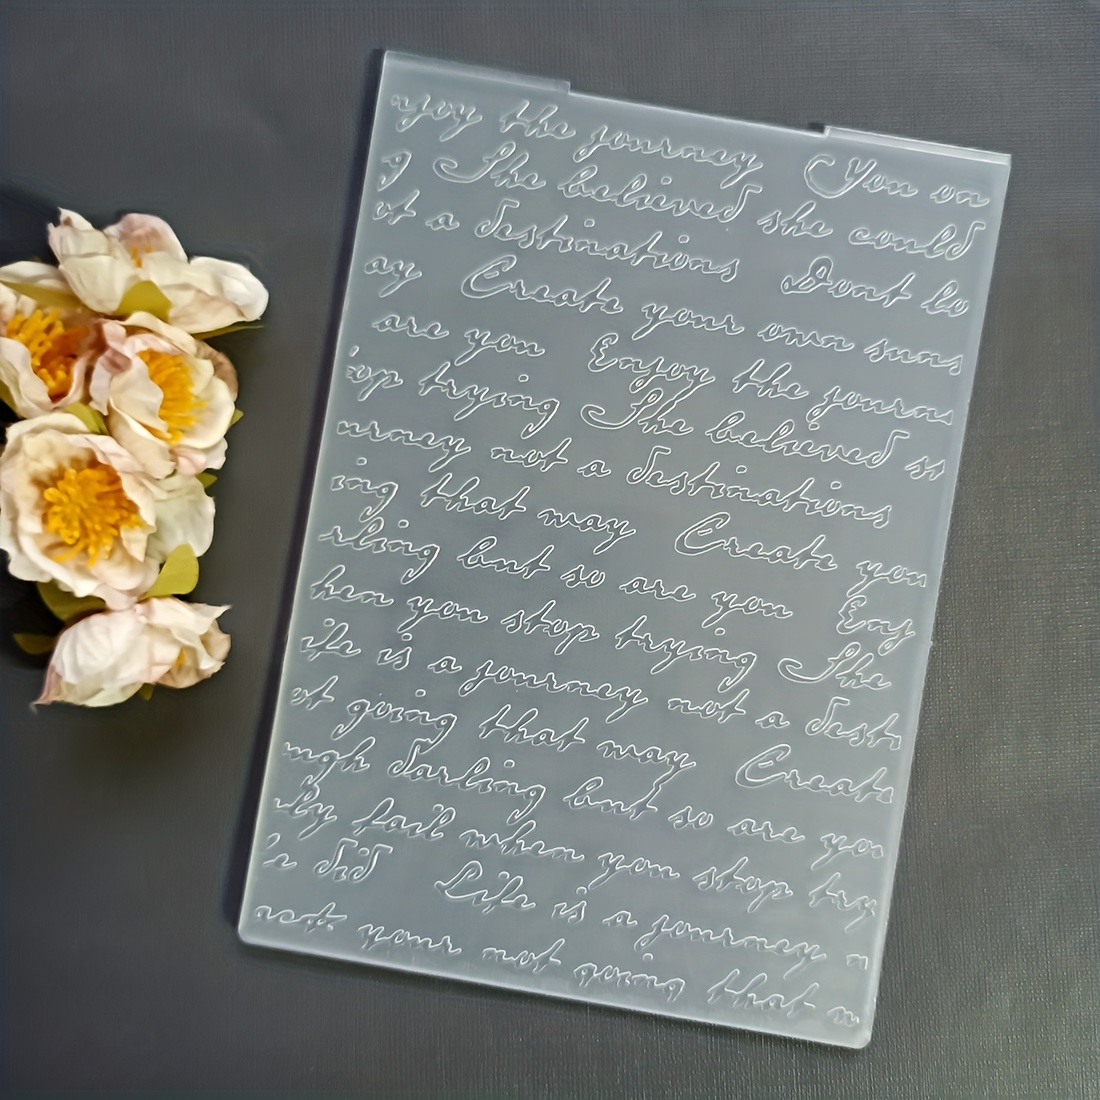 njoy the journey You on
g She believed she could
ot a destinations Dont lo
ay Create your own suns
are you Enjoy the journe
op trying She believed sh
urney not a destinations
ing that may Create you
rling but so are you Enj
hen you stop trying She
ife is a journey not a desti
ot going that may Create
ugh darling but so are you
ly fail when you stop try
e did Life is a journey n
your not going that m